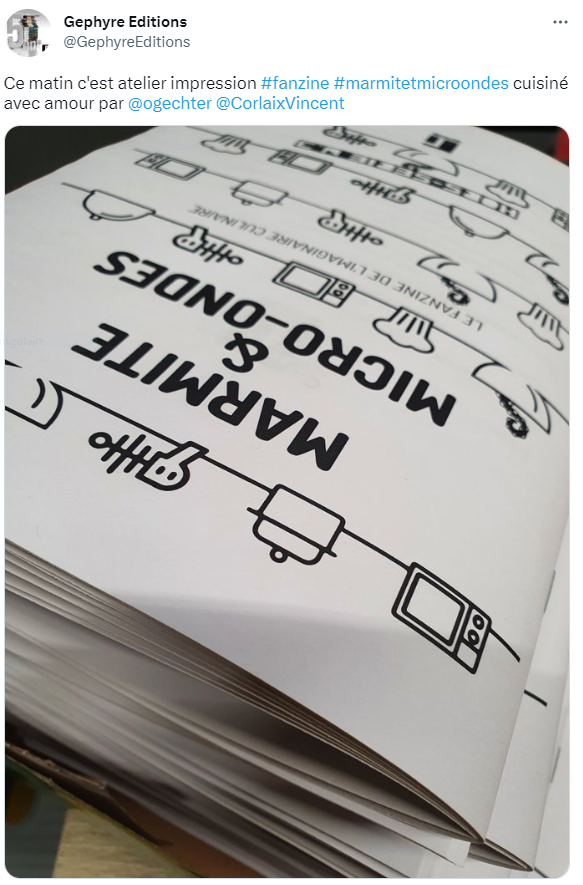 Gephyre Editions
@GephyreEditions
Ce matin c'est atelier impression #fanzine #marmitetmicroondes cuisiné
avec amour par @ogechter @CorlaixVincent
MARMITE
&
MICRO-ONDES
LE FANZINE DE L'IMAGINAIRE CULINAIRE